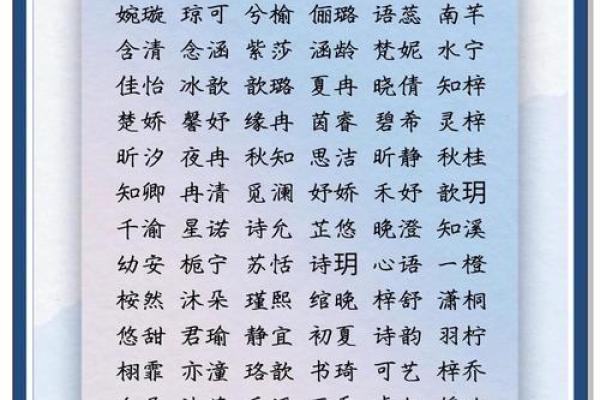 婉璇 琼可 兮榆 俪璐 语蕊 南芊
含清 念涵 紫莎 涵龄 梵妮 水宁
佳怡 冰歆 歆璐 夏冉 晓倩 知梓
楚娇 馨妤 缘冉 茵睿 碧希 灵梓
昕汐 夜冉 秋知 思洁 昕静 秋桂
知卿 冉清 觅澜 妤娇 禾妤 歆玥
千渝 星诺 诗允 芷悠 晚澄 知溪
幼安 栀宁 苏恬 诗玥 心语 一橙
桉然 沐朵 瑾熙 绾晚 梓舒 潇桐
悠甜 君瑜 静宜 初夏 诗韵 羽柠
栩霏 亦潼 珞歆 书琦 可艺 梓乔